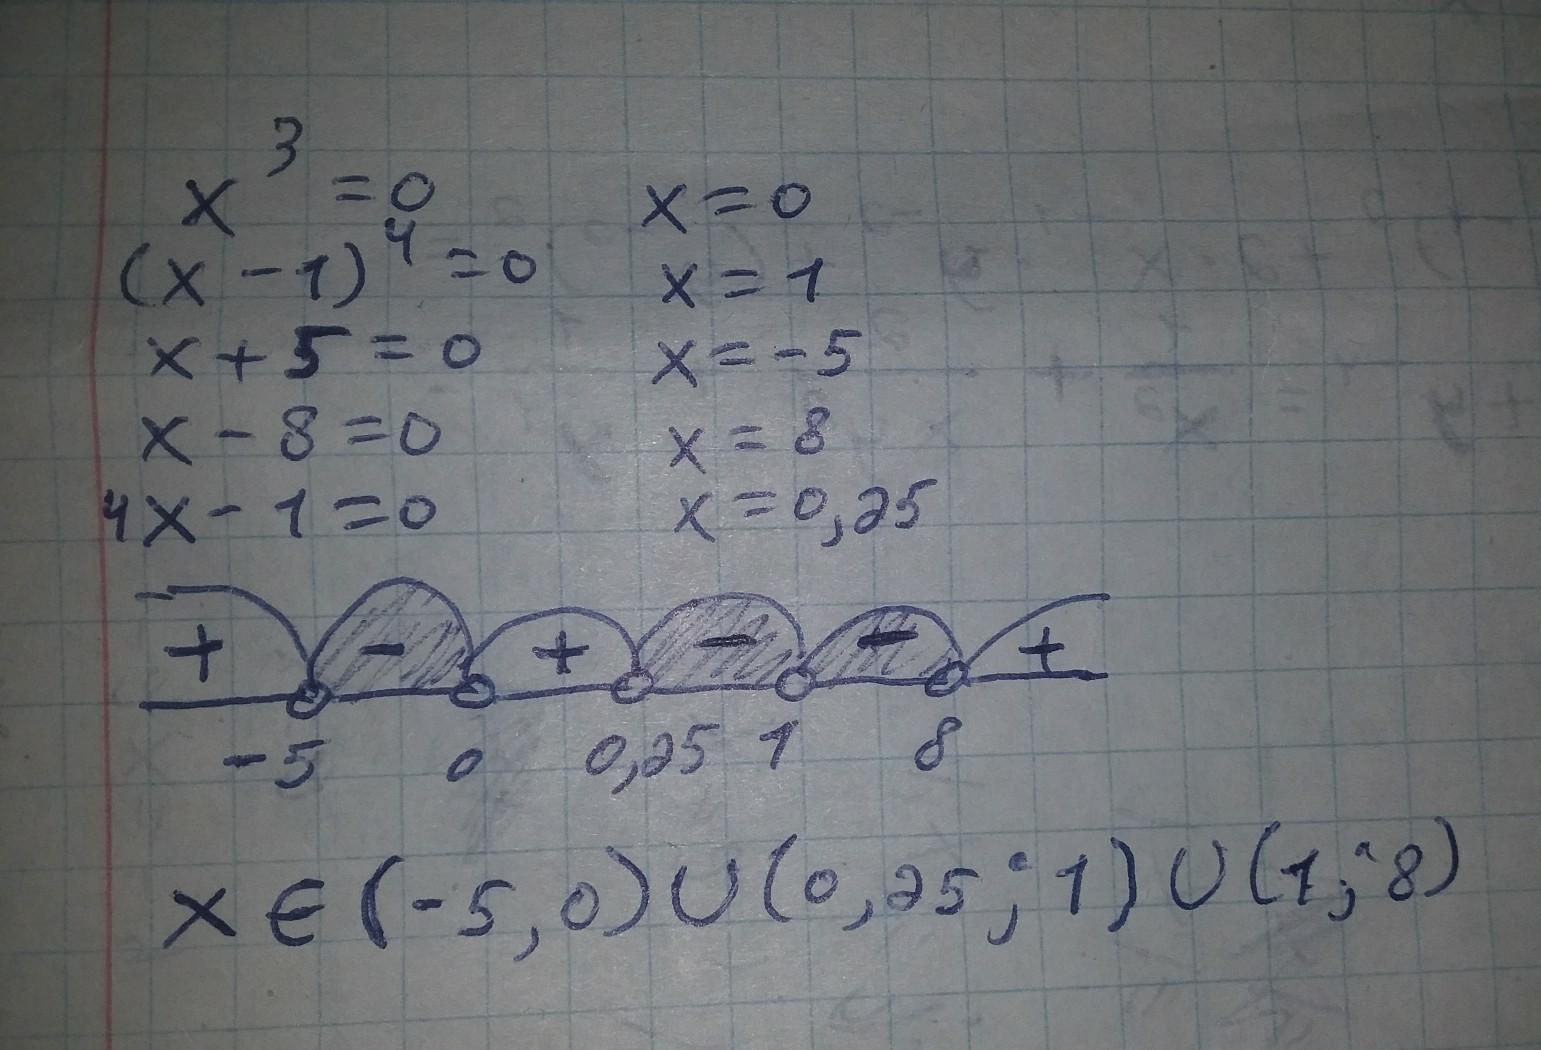 x³ = 0 x = 0
(x - 1)⁴ = 0 x = 1
x + 5 = 0 x = -5
x - 8 = 0 x = 8
4x - 1 = 0 x = 0,25
+ - + - - +
-5 0 0,25 1 8
x ∈ (-5, 0) ∪ (0,25; 1) ∪ (1; 8)